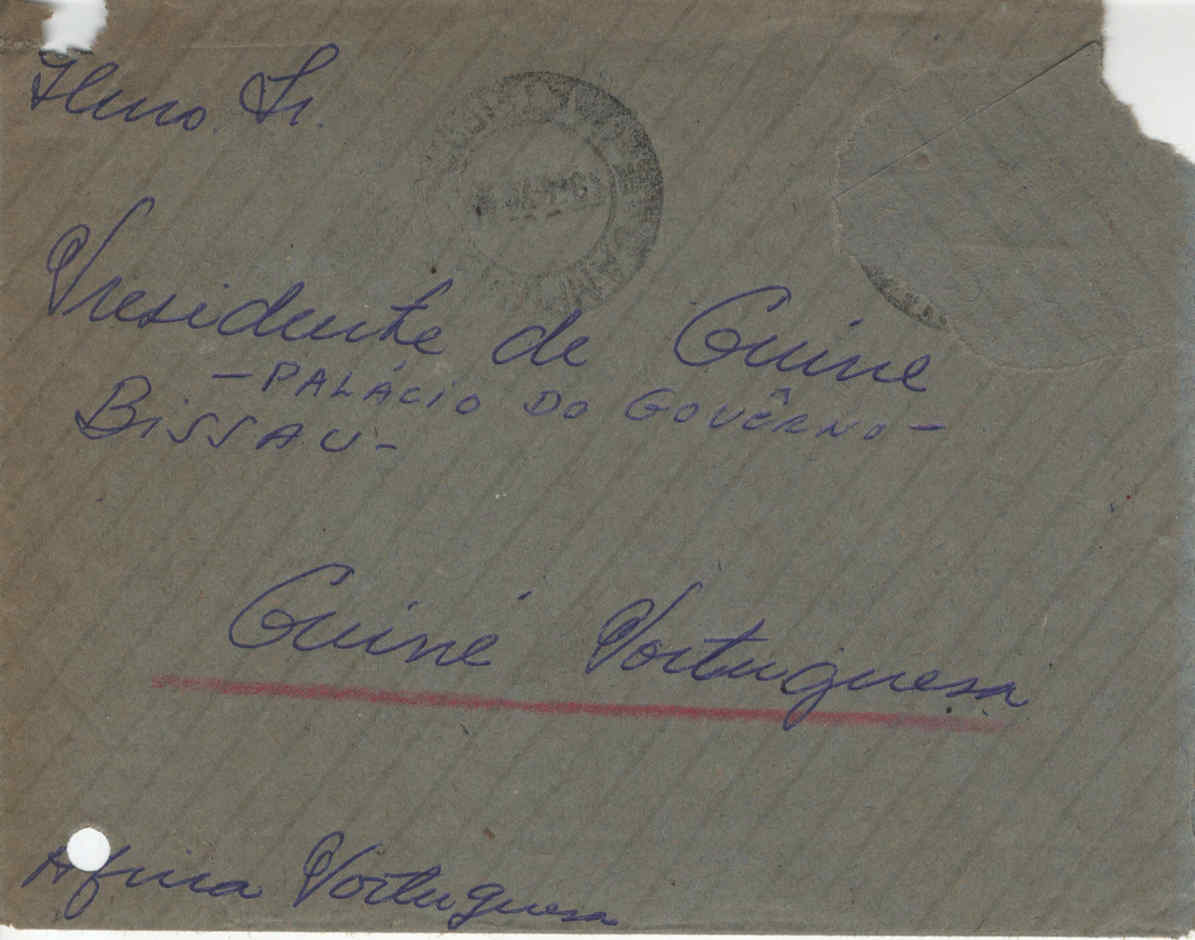 Ilmo. Sr.
Presidente de Guine
- PALÁCIO DO GOVÊRNO -
BISSAU -
Guiné Portuguesa
Africa Portuguesa